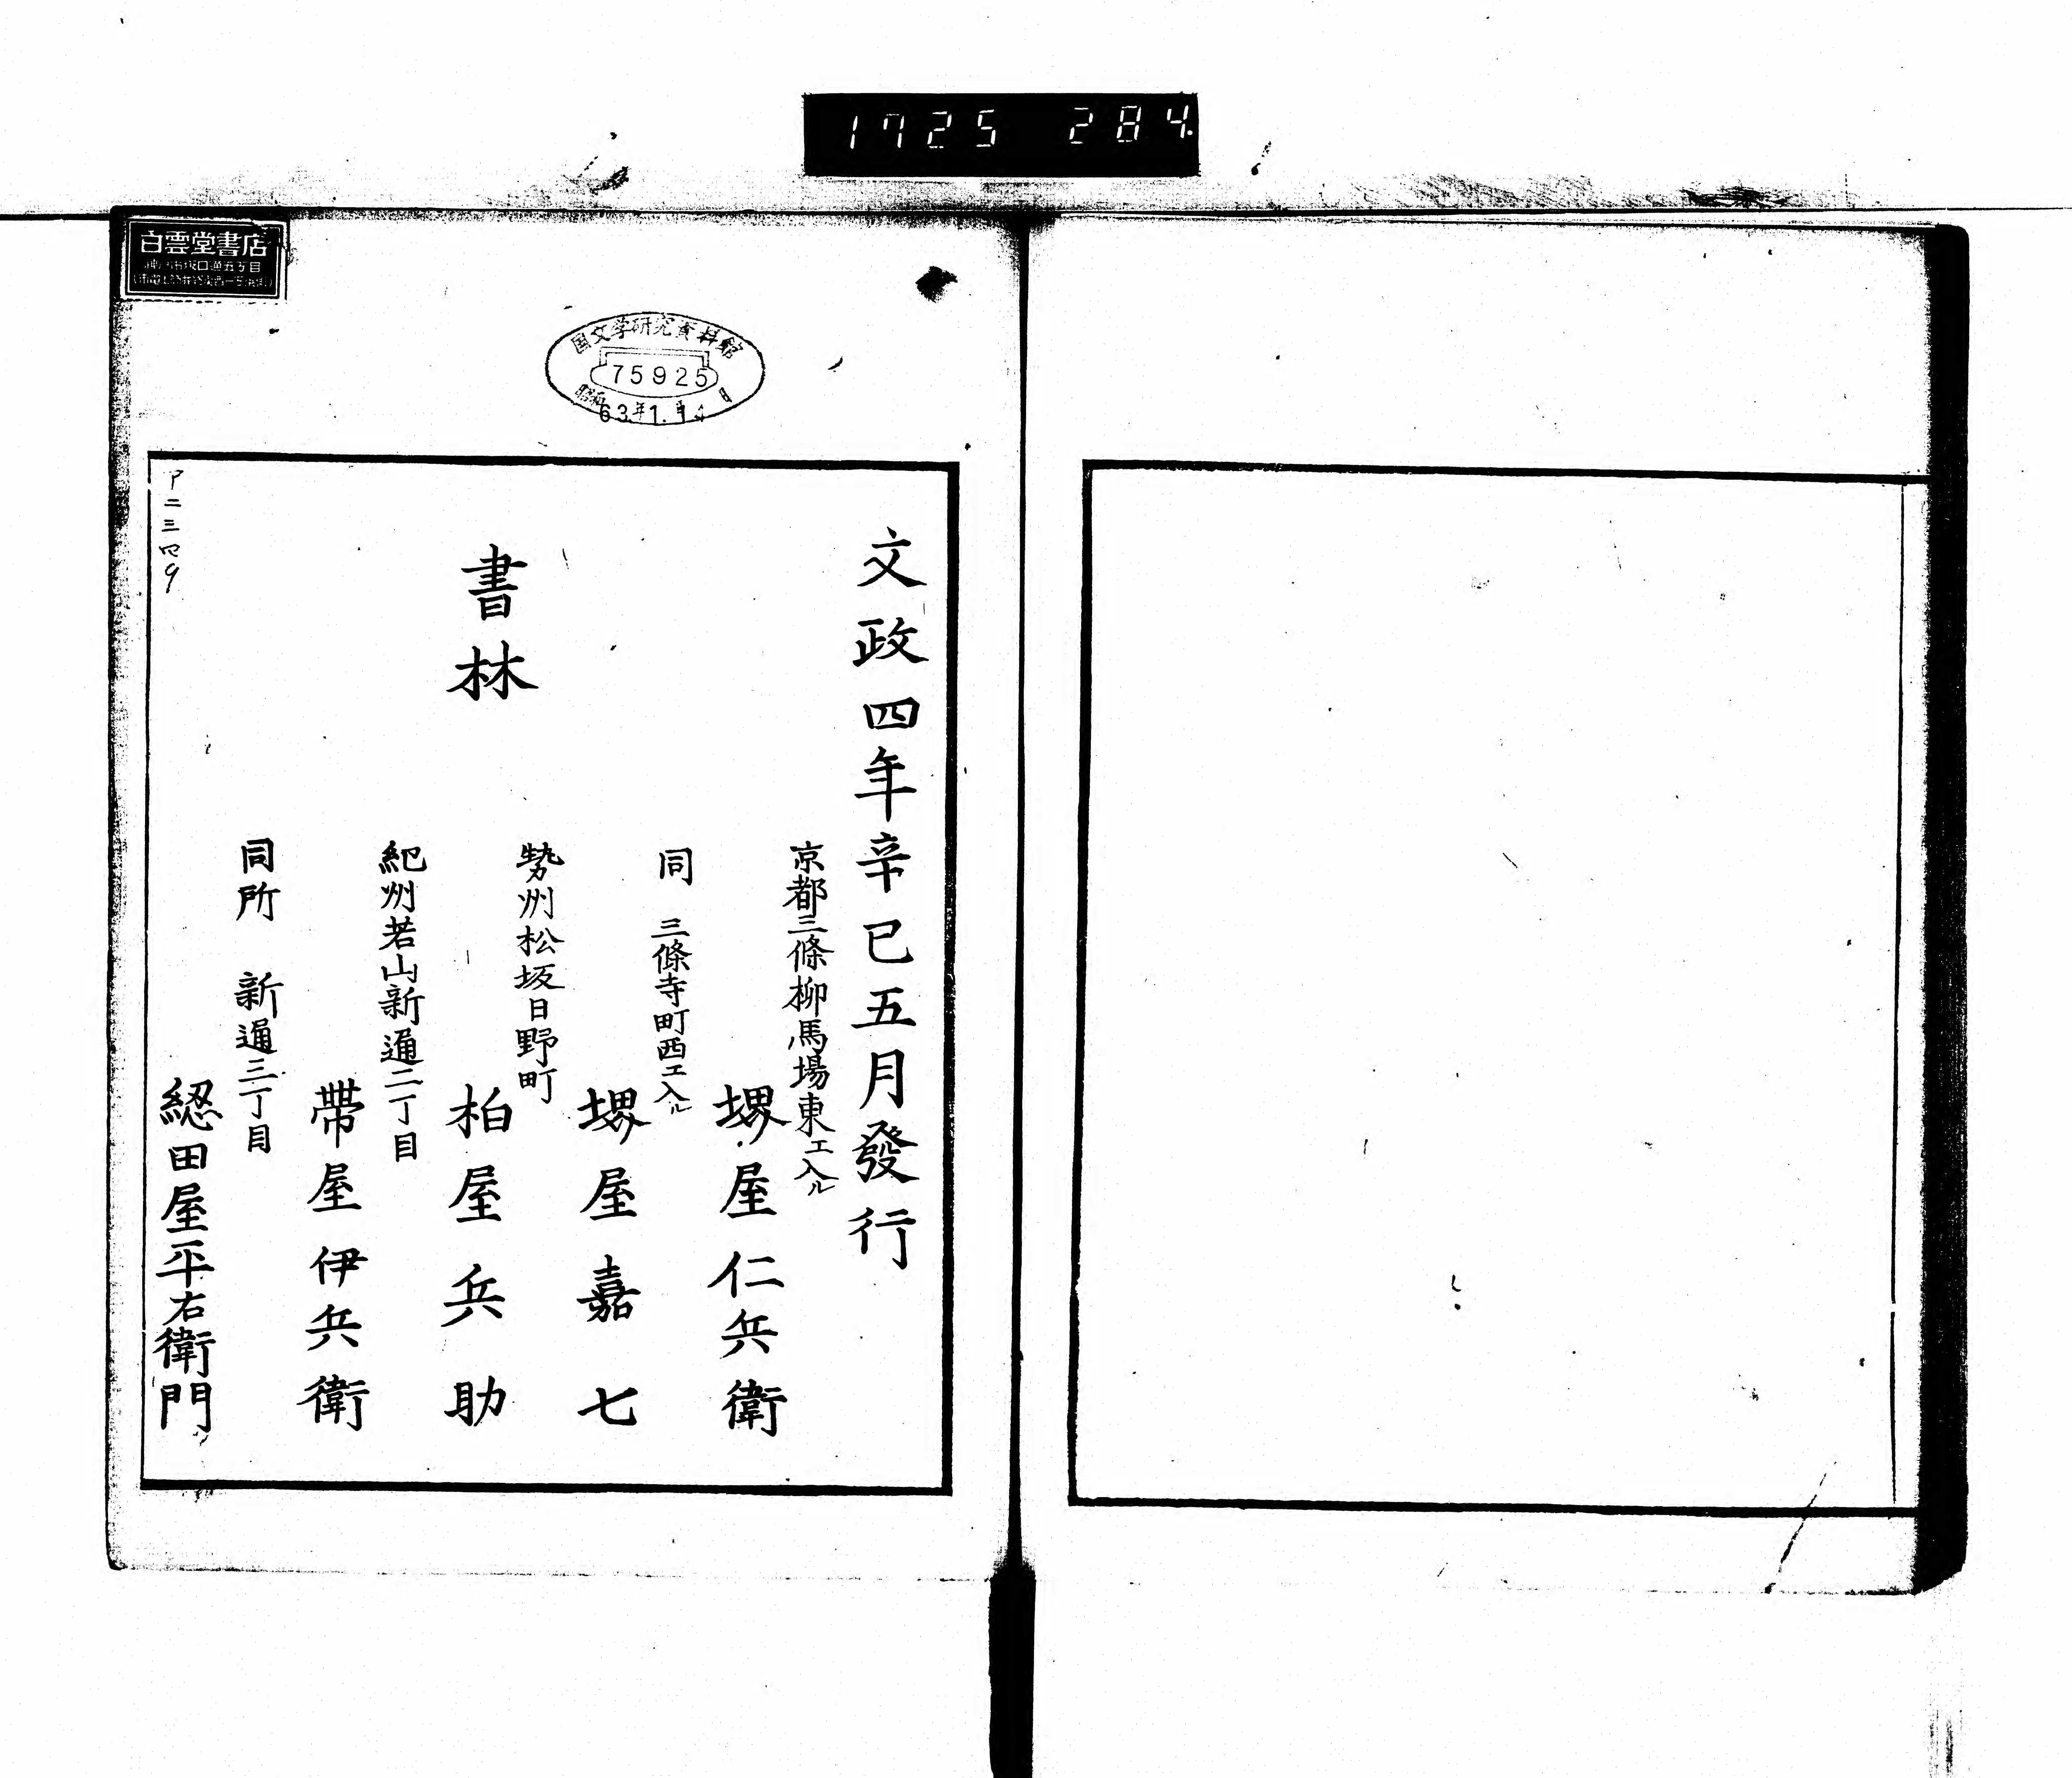 1725 284.
白雲堂書店
国文学研究資料館
75925
昭和63年1.14
文政四年辛巳五月發行
書林
京都三條柳馬場東エ入ル
堺屋仁兵衛
同 三條寺町西エ入ル
堺屋嘉七
勢州松坂日野町
柏屋兵助
紀州若山新通二丁目
帶屋伊兵衛
同所 新通三丁目
綛田屋平右衛門